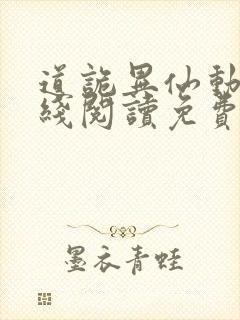 道詭異仙動
綫閱讀免費
墨衣青蛙